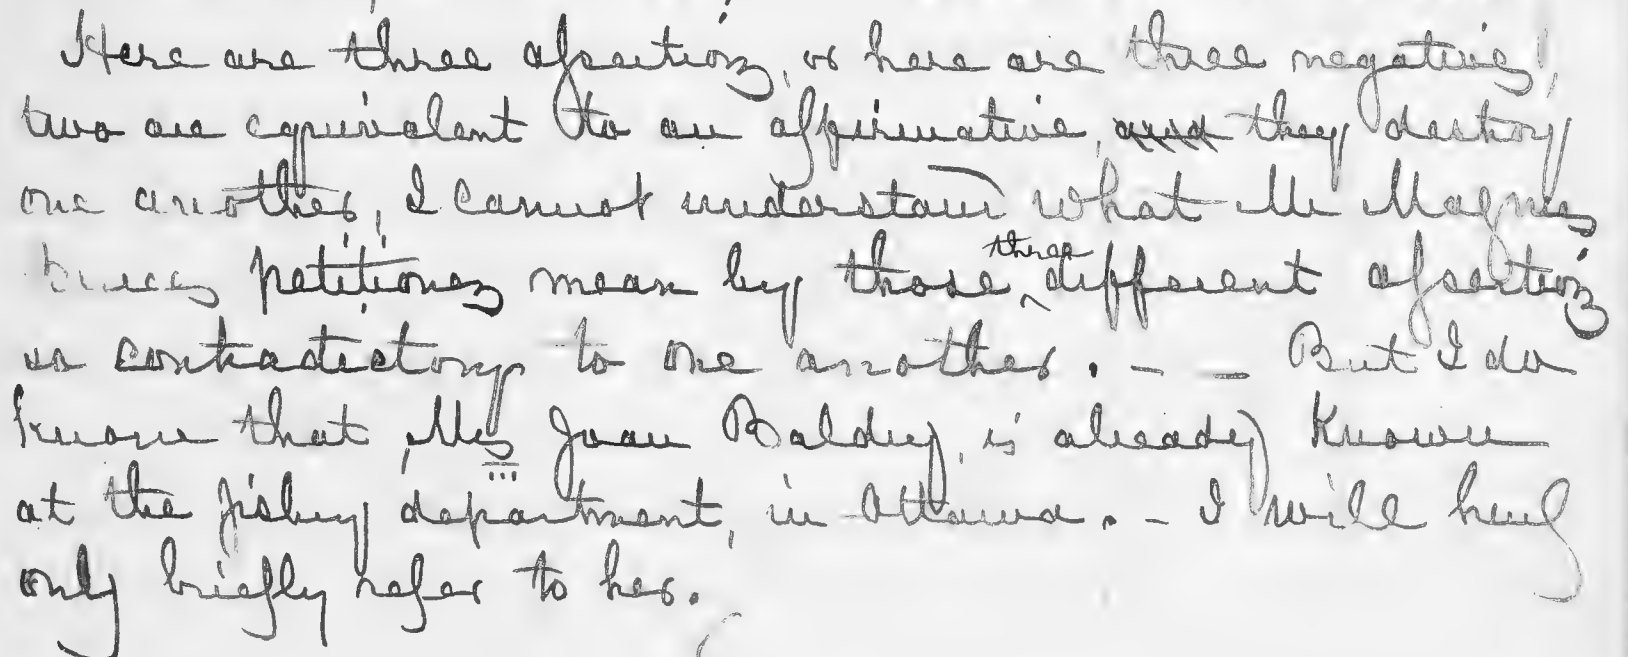 Here are three assertions, or here are three negatives,
two are equivalent to an affirmative, they destroy
one another, I cannot understand what Mr Magnus
petitioners mean by those three different assertions
so contradictory to one another. - - But I do
know that Mrs Joan Baldry, is already Known
at the fishery department, in Ottawa. - I will
only briefly refer to her.